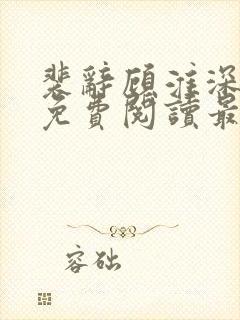 裴辭顧淮深
免費閱讀最
容础